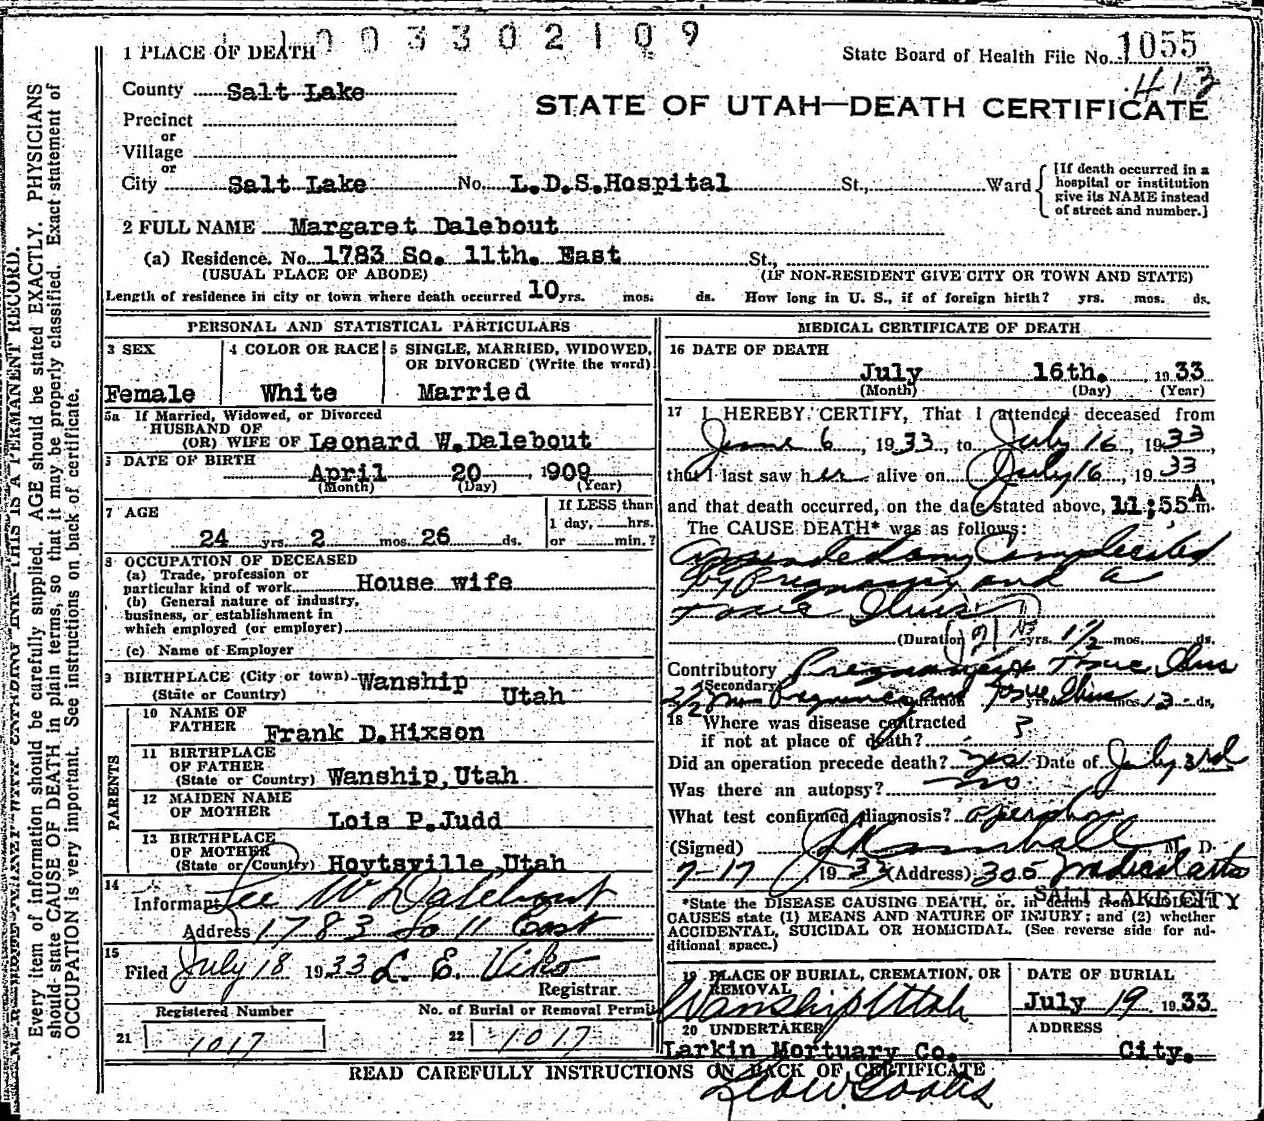 1003302109
1 PLACE OF DEATH
State Board of Health File No. 1055
412
County Salt Lake
STATE OF UTAH—DEATH CERTIFICATE
Precinct
or
Village
or
City Salt Lake No. L.D.S.Hospital St., Ward
[If death occurred in a
hospital or institution
give its NAME instead
of street and number.]
2 FULL NAME Margaret Dalebout
(a) Residence. No. 1783 So. 11th. East St.,
(USUAL PLACE OF ABODE) (IF NON-RESIDENT GIVE CITY OR TOWN AND STATE)
Length of residence in city or town where death occurred 10 yrs. mos. ds. How long in U. S., if of foreign birth? yrs. mos. ds.
PERSONAL AND STATISTICAL PARTICULARS
3 SEX
Female
4 COLOR OR RACE
White
5 SINGLE, MARRIED, WIDOWED,
OR DIVORCED (Write the word)
Married
5a If Married, Widowed, or Divorced
HUSBAND OF
(OR) WIFE OF Leonard W.Dalebout
DATE OF BIRTH
April 20 1909
(Month) (Day) (Year)
7 AGE
24 yrs. 2 mos. 26 ds.
If LESS than
1 day, hrs.
or min.?
8 OCCUPATION OF DECEASED
(a) Trade, profession or
particular kind of work House wife
(b) General nature of industry,
business, or establishment in
which employed (or employer)
(c) Name of Employer
9 BIRTHPLACE (City or town) Wanship
(State or Country) Utah
PARENTS
10 NAME OF
FATHER Frank D.Hixson
11 BIRTHPLACE
OF FATHER
(State or Country) Wanship,Utah
12 MAIDEN NAME
OF MOTHER
Lois P.Judd
13 BIRTHPLACE
OF MOTHER
(State or Country) Hoytsville,Utah
14
Informant Lee W Dalebout
Address 1783 So 11 East
15
Filed July 18 1933 L. E. Viko
Registrar.
Registered Number
21 1017
No. of Burial or Removal Permit
22 1017
MEDICAL CERTIFICATE OF DEATH
16 DATE OF DEATH
July 16th. 1933
(Month) (Day) (Year)
17 I HEREBY CERTIFY, That I attended deceased from
June 6, 1933, to July 16, 1933,
that I last saw her alive on July 16, 1933,
and that death occurred, on the date stated above, 11;55 A m.
The CAUSE DEATH* was as follows:
Complicated
by Pregnancy and a
(Duration) yrs. 1½ mos. ds.
Contributory
(Secondary)
Pregnancy and yrs. mos. 13 ds.
18 Where was disease contracted
if not at place of death? ?
Did an operation precede death? yes Date of July 3rd
Was there an autopsy? no
What test confirmed diagnosis? operation
(Signed) M. D.
7-17, 1933 (Address) 305 Medical Arts
SALT LAKE CITY
*State the DISEASE CAUSING DEATH, or, in deaths from VIOLENT
CAUSES state (1) MEANS AND NATURE OF INJURY; and (2) whether
ACCIDENTAL, SUICIDAL OR HOMICIDAL. (See reverse side for ad-
ditional space.)
19 PLACE OF BURIAL, CREMATION, OR
REMOVAL
Wanship Utah
DATE OF BURIAL
July 19 1933
20 UNDERTAKER
Larkin Mortuary Co.
ADDRESS
City.
READ CAREFULLY INSTRUCTIONS ON BACK OF CERTIFICATE
THIS IS A PERMANENT RECORD.
Every item of information should be carefully supplied. AGE should be stated EXACTLY. PHYSICIANS
should state CAUSE OF DEATH in plain terms, so that it may be properly classified. Exact statement of
OCCUPATION is very important. See instructions on back of certificate.